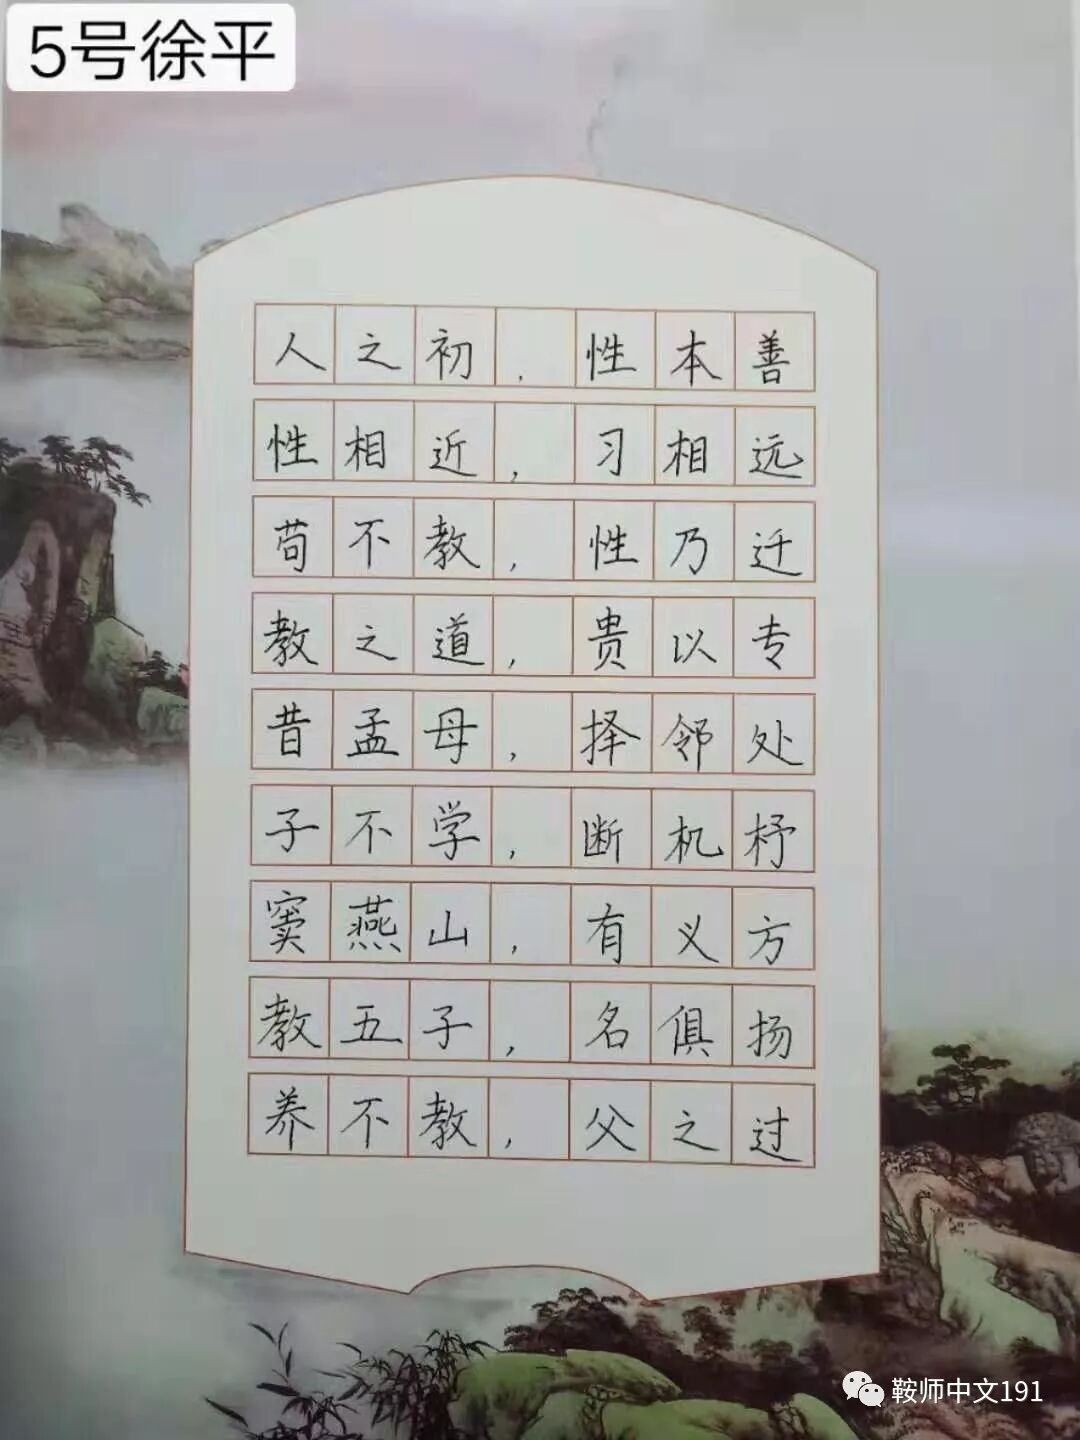 5号徐平
人之初，性本善
性相近，习相远
苟不教，性乃迁
教之道，贵以专
昔孟母，择邻处
子不学，断机杼
窦燕山，有义方
教五子，名俱扬
养不教，父之过
鞍师中文191